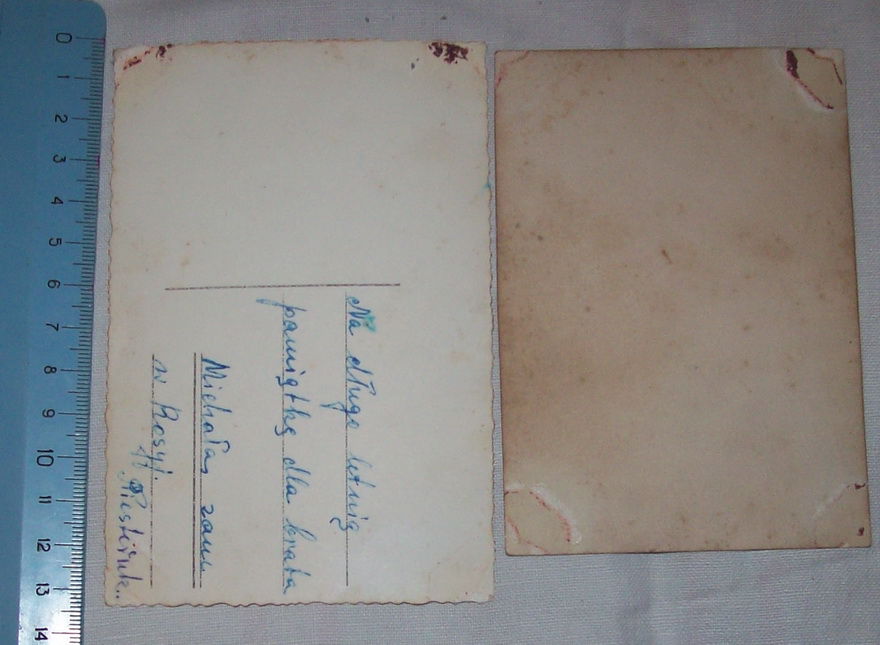 Na długo letnią
pamiątkę dla brata
Michała, zam.
w Rosyi.
0
1
2
3
4
5
6
7
8
9
10
11
12
13
14